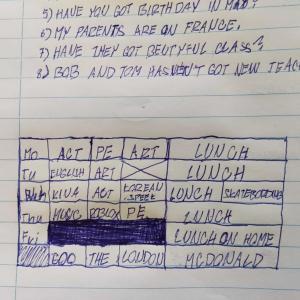 5) HAVE YOU GOT BIRTHDAY IN MAY?
6) MY PARENTS ARE ON FRANCE.
7) HAVE THEY GOT BEUTYFUL CLASS?
8) BOB AND TOM HASVEN'T GOT NEW TEAC
Mo ACT PE ART LUNCH
Tu ENGLISH ART LUNCH
KINA ACT KOREAN SPEEK LUNCH SKATEBORDING
Thu MUSIC ROBLOX PE LUNCH
Fri LUNCH ON HOME
GOO THE LONDON MCDONALD